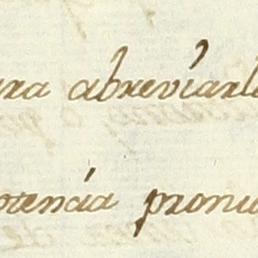 ara abreviarl
otencia pronu